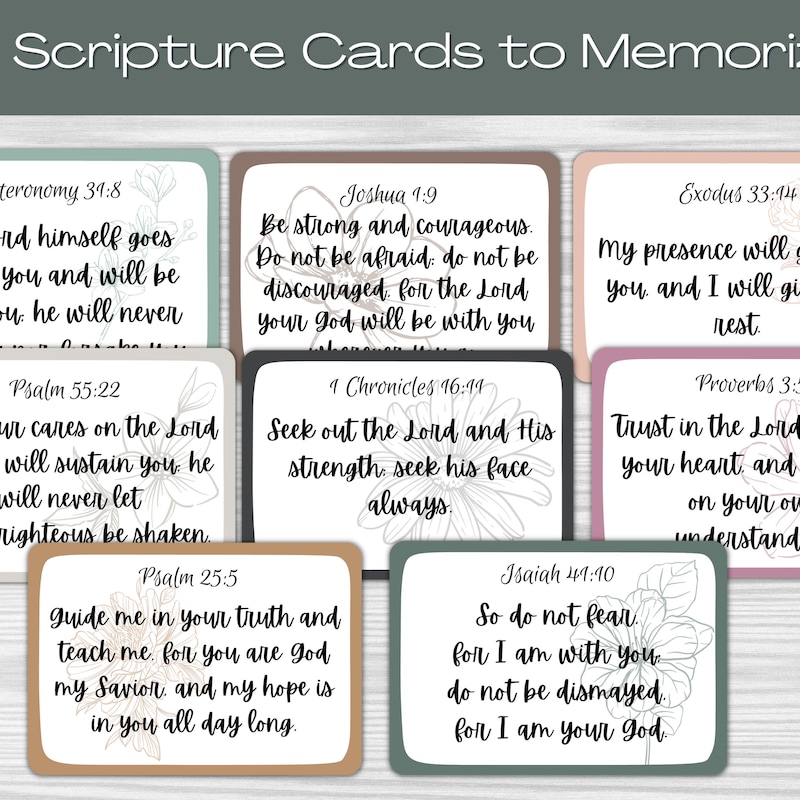 Scripture Cards to Memoriz
teronomy 31:8
ord himself goes
you and will be
ou; he will never
nor forsake you
Joshua 1:9
Be strong and courageous.
Do not be afraid; do not be
discouraged, for the Lord
your God will be with you
wherever you g
Exodus 33:14
My presence will g
you, and I will gi
rest.
Psalm 55:22
ur cares on the Lord
will sustain you; he
will never let
righteous be shaken.
1 Chronicles 16:11
Seek out the Lord and His
strength; seek his face
always.
Proverbs 3:5
Trust in the Lord
your heart, and
on your ow
understand
Psalm 25:5
Guide me in your truth and
teach me, for you are God
my Savior, and my hope is
in you all day long.
Isaiah 41:10
So do not fear,
for I am with you;
do not be dismayed,
for I am your God.